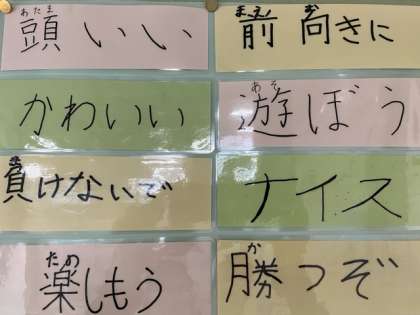 あたま
頭いい
まえ む
前向きに
かわいい
あそ
遊ぼう
ま
負けないで
ナイス
たの
楽しもう
か
勝つぞ